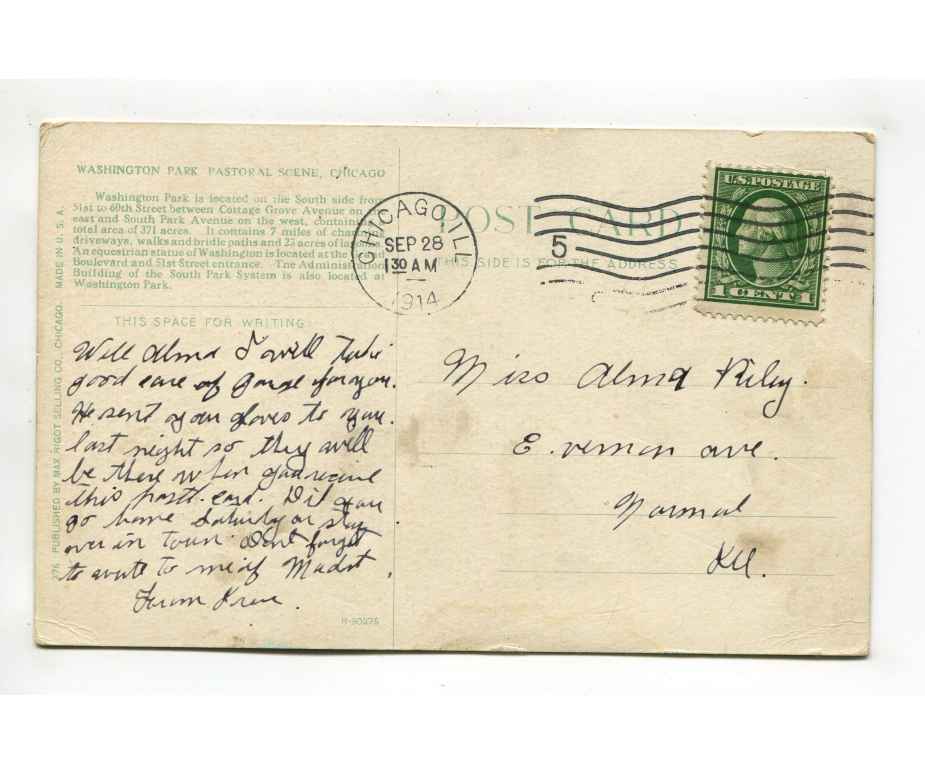 WASHINGTON PARK PASTORAL SCENE, CHICAGO
Washington Park is located on the South side from
51st to 60th Street between Cottage Grove Avenue on
east and South Park Avenue on the west,
total area of 371 acres. It contains 7 miles of
driveways, walks and bridle paths and acres of
An equestrian statue of Washington is located at the
Boulevard and 51st Street entrance. The Administration
Building of the South Park System is also located at
Washington Park.
THIS SPACE FOR WRITING
Well Alma I will take
good care of for you.
He sent your gloves to you
last night so they will
be there when you receive
this post card. Did you
go home or stay
over in town. Dont forget
to write to me
From
276 PUBLISHED BY MAX RIGOT SELLING CO., CHICAGO. MADE IN U. S. A.
H-90275
CHICAGO, ILL
SEP 28
130 AM
1914
5
POST CARD
THIS SIDE IS FOR THE ADDRESS
U.S. POSTAGE
1 CENT 1
Miss Alma Riley.
E. vernon ave.
Normal
Ill.